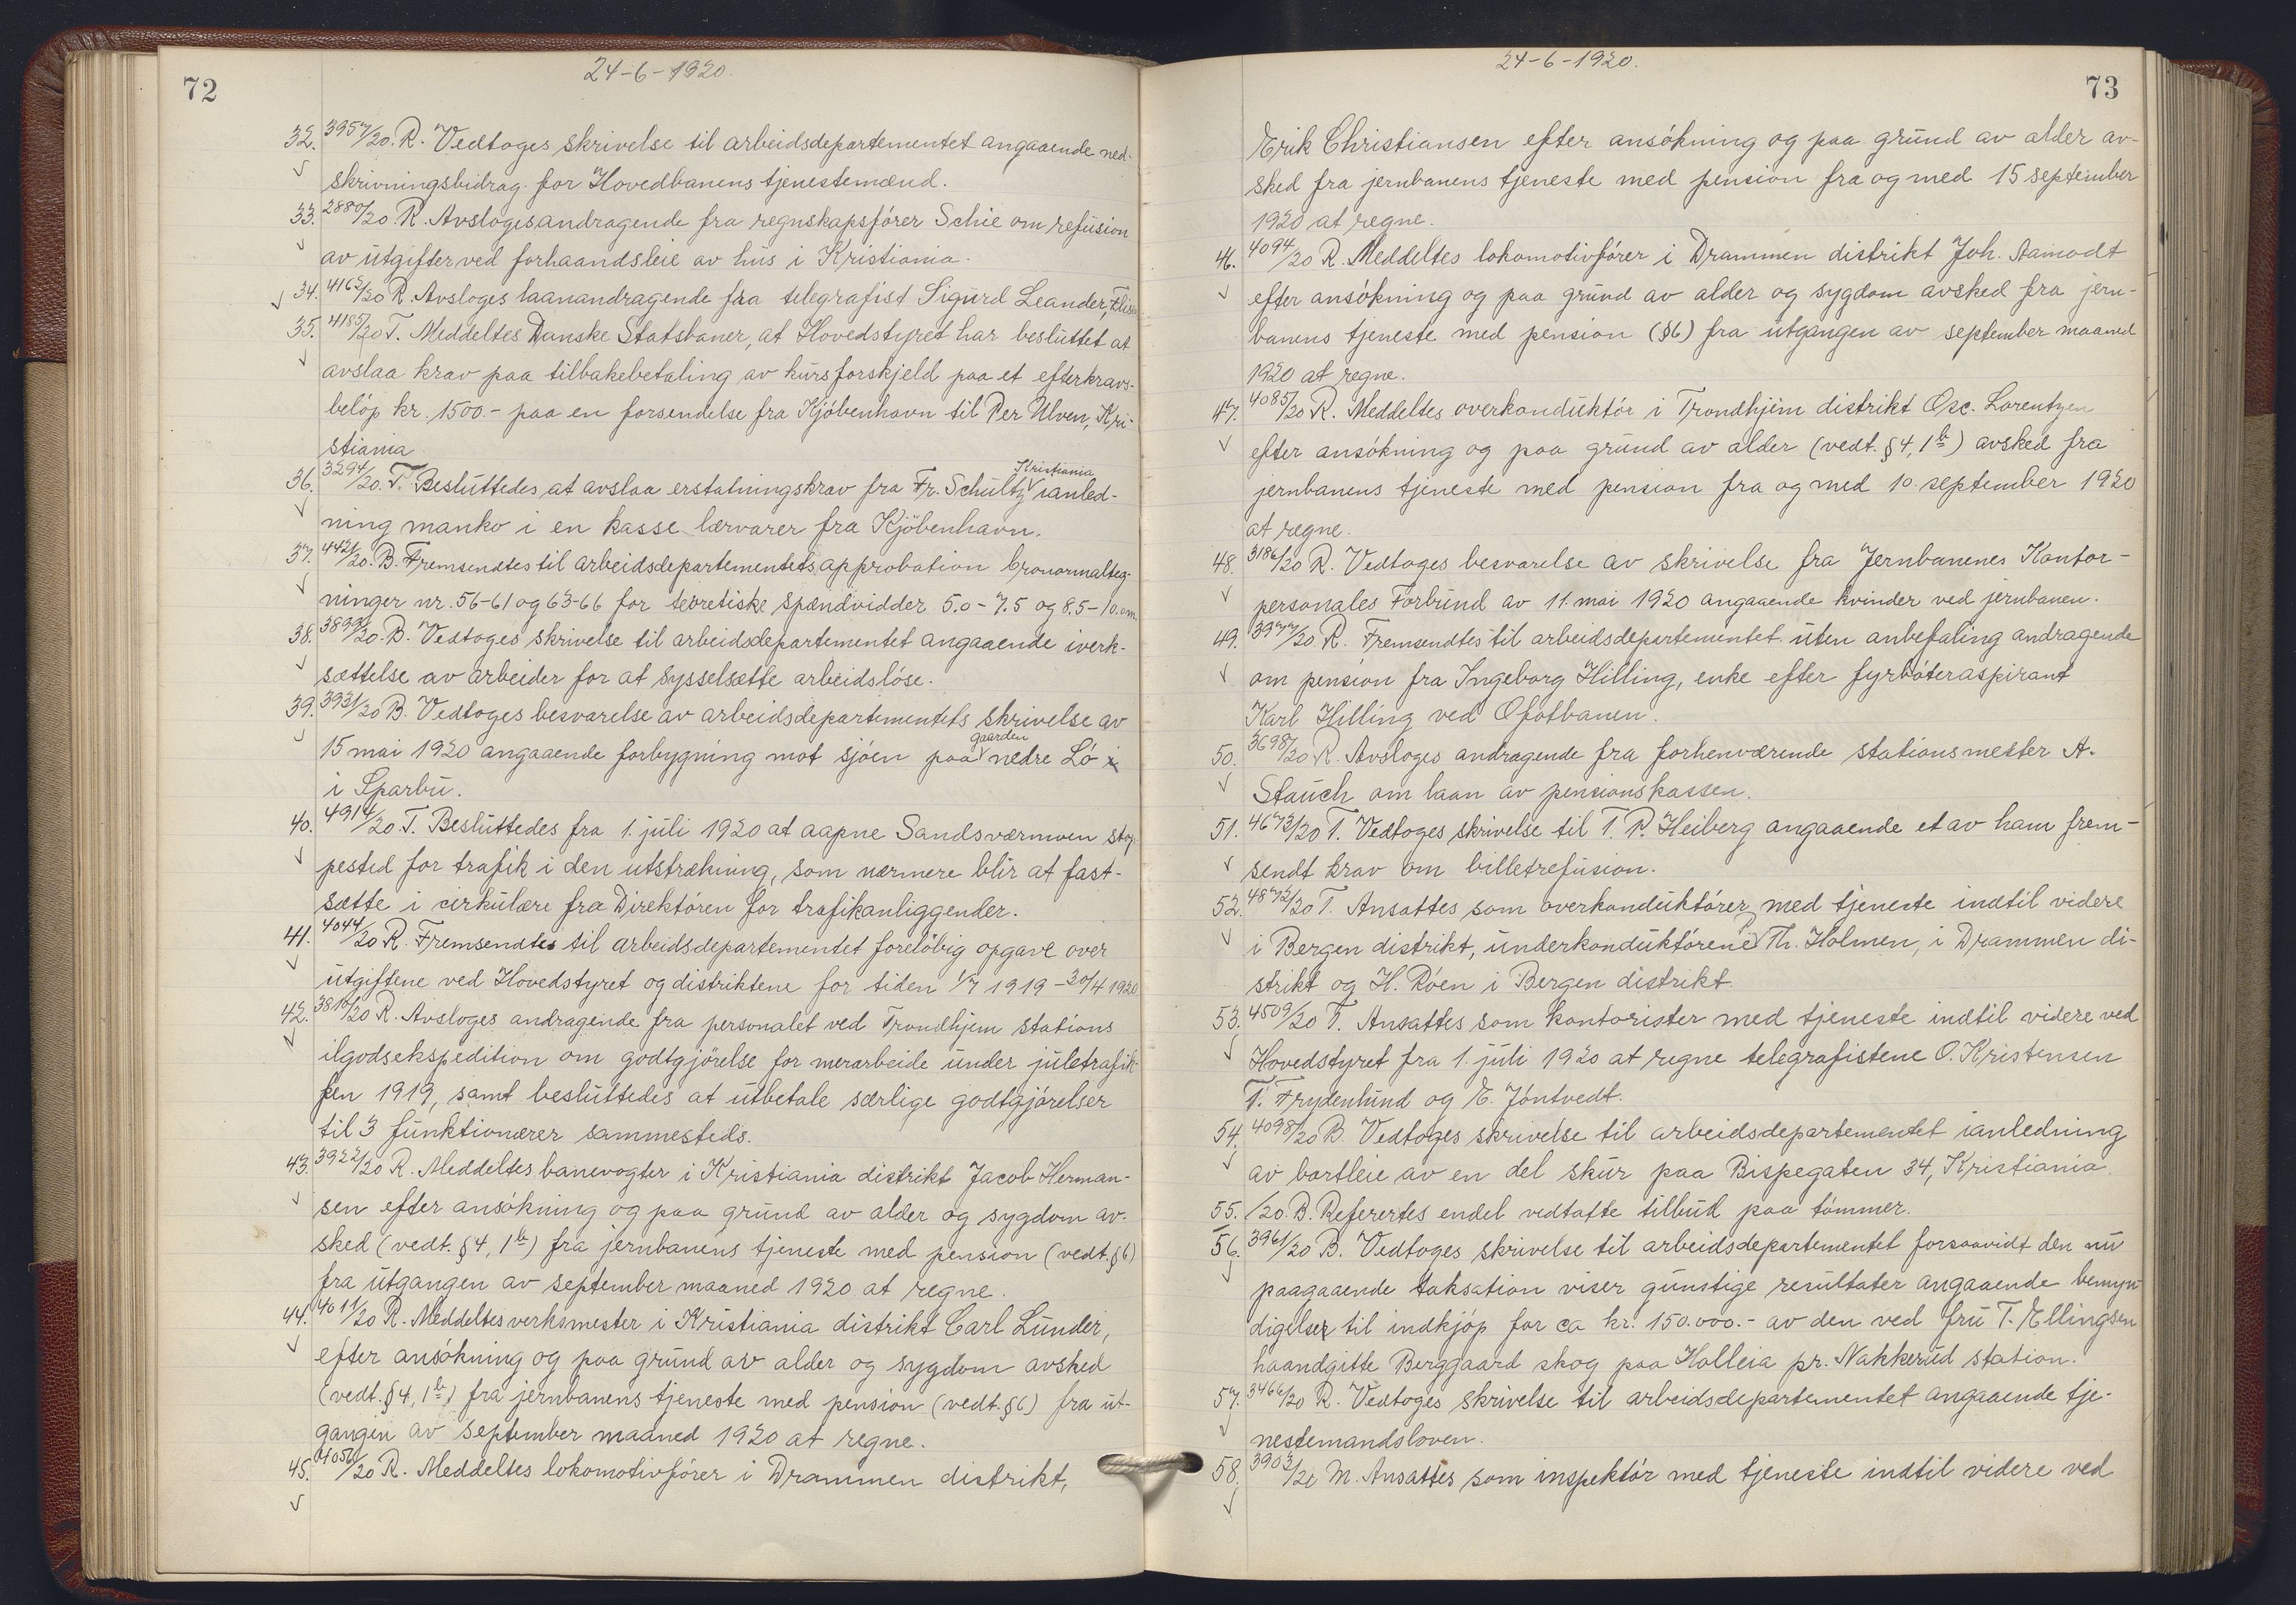 72
24-6-1920.
32. 3957/20. R. Vedtoges skrivelse til arbeidsdepartementet angaaende ned-
skrivningsbidrag for Hovedbanens tjenestemænd.
33. 2880/20. R. Avsloges andragende fra regnskapsfører Schie om refusion
av utgifter ved forhaandsleie av hus i Kristiania.
34. 4162/20 R. Avsloges laanandragende fra telegrafist Sigurd Leander,
35. 4185/20 T. Meddeltes Danske Statsbaner, at Hovedstyret har besluttet at
avslaa krav paa tilbakebetaling av kursforskjeld paa et efterkravs-
beløp kr. 1500.- paa en forsendelse fra Kjøbenhavn til Per Ulven, Kri-
stiania
36. 3294/20. T. Besluttedes at avslaa erstatningskrav fra Fr. Schultz Kristiania ianled-
ning manko i en kasse lærvarer fra Kjöbenhavn.
37. 4421/20. B. Fremsendtes til arbeidsdepartementets approbation bronormalteg-
ninger nr. 56-61 og 63-66 for teoretiske spændvidder 5.0-7.5 og 8.5-10.0m
38. /20. B. Vedtoges skrivelse til arbeidsdepartementet angaaende iverk-
sættelse av arbeider for at sysselsætte arbeidsløse.
39. 3921/20 B. Vedtoges besvarelse av arbeidsdepartementets skrivelse av
15 mai 1920 angaaende forbygning mot sjøen paa gaarden nedre Lö
i Sparbu.
40. 4914/20. T. Besluttedes fra 1. juli 1920 at aapne Sandsværmoen stop-
pested for trafik i den utstrækning, som nærmere blir at fast-
sætte i cirkulære fra Direktøren for trafikanliggender.
41. 4044/20 R. Fremsendtes til arbeidsdepartementet foreløbig opgave over
utgiftene ved Hovedstyret og distriktene for tiden 1/7 1919 - 30/4 1920
42. 3810/20 R. Avsloges andragende fra personalet ved Trondhjem stations
ilgodsekspedition om godtgjörelse for merarbeide under juletrafik-
ken 1919, samt besluttedes at utbetale særlige godtgjørelser
til 3 funktionærer sammesteds.
43. 3922/20 R. Meddeltes banevogter i Kristiania distrikt Jacob Herman-
sen efter ansøkning og paa grund av alder og sygdom av-
sked (vedt. § 4, 1ste) fra jernbanens tjeneste med pension (vedt. § 6)
fra utgangen av september maaned 1920 at regne.
44. 4011/20 R. Meddeltes verksmester i Kristiania distrikt Carl Lunder,
efter ansøkning og paa grund av alder og sygdom avsked
(vedt. § 4, 1ste) fra jernbanens tjeneste med pension (vedt. § 6) fra ut-
gangen av september maaned 1920 at regne.
45. 4056/20 R. Meddeltes lokomotivfører i Drammen distrikt,
24-6-1920.
73
Erik Christiansen efter ansøkning og paa grund av alder av-
sked fra jernbanens tjeneste med pension fra og med 15 september
1920 at regne.
46. 4094/20 R. Meddeltes lokomotivfører i Drammen distrikt Joh. Aamodt
efter ansøkning og paa grund av alder og sygdom avsked fra jern-
banens tjeneste med pension (§6) fra utgangen av september maaned
1920 at regne.
47. 4085/20 R. Meddeltes overkonduktør i Trondhjem distrikt Osc. Lorentzen
efter ansøkning og paa grund av alder (vedt. § 4, 1ste) avsked fra
jernbanens tjeneste med pension fra og med 10. september 1920
at regne.
48. 3186/20 R. Vedtoges besvarelse av skrivelse fra Jernbanenes Kontor-
personales Forbund av 11. mai 1920 angaaende kvinder ved jernbanen.
49. 3977/20. R. Fremsendtes til arbeidsdepartementet uten anbefaling andragende
om pension fra Ingeborg Hilling, enke efter fyrbøteraspirant
Karl Hilling ved Ofotbanen.
50. 3698/20 R. Avsloges andragende fra forhenværende stationsmester A.
Stauch om laan av pensionskassen.
51. 4673/20 T. Vedtoges skrivelse til T. P. Heiberg angaaende et av ham frem-
sendt krav om billetrefusion.
52. 4872/20 T. Ansattes som overkonduktører, med tjeneste indtil videre
i Bergen distrikt, underkonduktørene Th. Holmen, i Drammen di-
strikt og H. Røen i Bergen distrikt.
53. 4509/20 T. Ansattes som kontorister med tjeneste indtil videre ved
Hovedstyret fra 1. juli 1920 at regne telegrafistene O. Kristensen
T. Frydenlund og E. Jöntvedt.
54. 4098/20 B. Vedtoges skrivelse til arbeidsdepartementet ianledning
av bortleie av en del skur paa Bispegaten 34, Kristiania.
55. /20. B. Refererttes endel vedtatte tilbud paa tømmer.
56. 3961/20 B. Vedtoges skrivelse til arbeidsdepartementet forsaavidt den nu
paagaaende taksation viser gunstige resultater angaaende bemyn-
digelse til indkjøp for ca kr. 150.000.- av den ved fru T. Ellingsen
haandgitte Berggaard skog paa Holleia pr. Nakkerud station.
57. 3466/20 R. Vedtoges skrivelse til arbeidsdepartementet angaaende tje-
nestemandsloven.
58. 3903/20 M. Ansattes som inspektør med tjeneste indtil videre ved